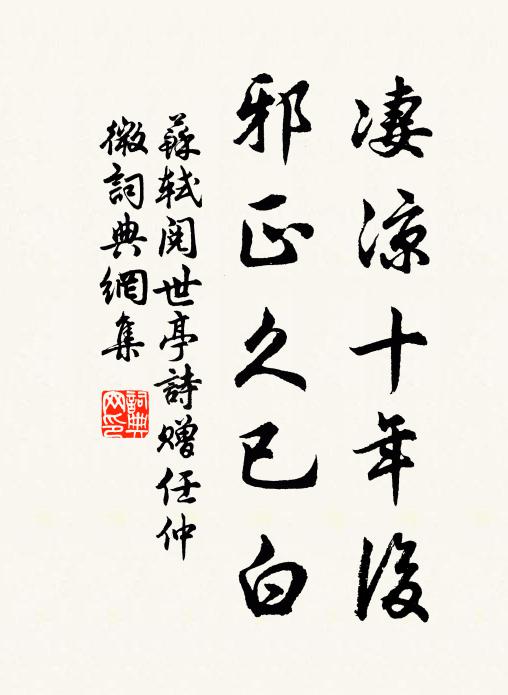 凄涼十年後
邪正久已白
蘇軾閱世亭詩贈任仲
微詞典網集
詞典网印